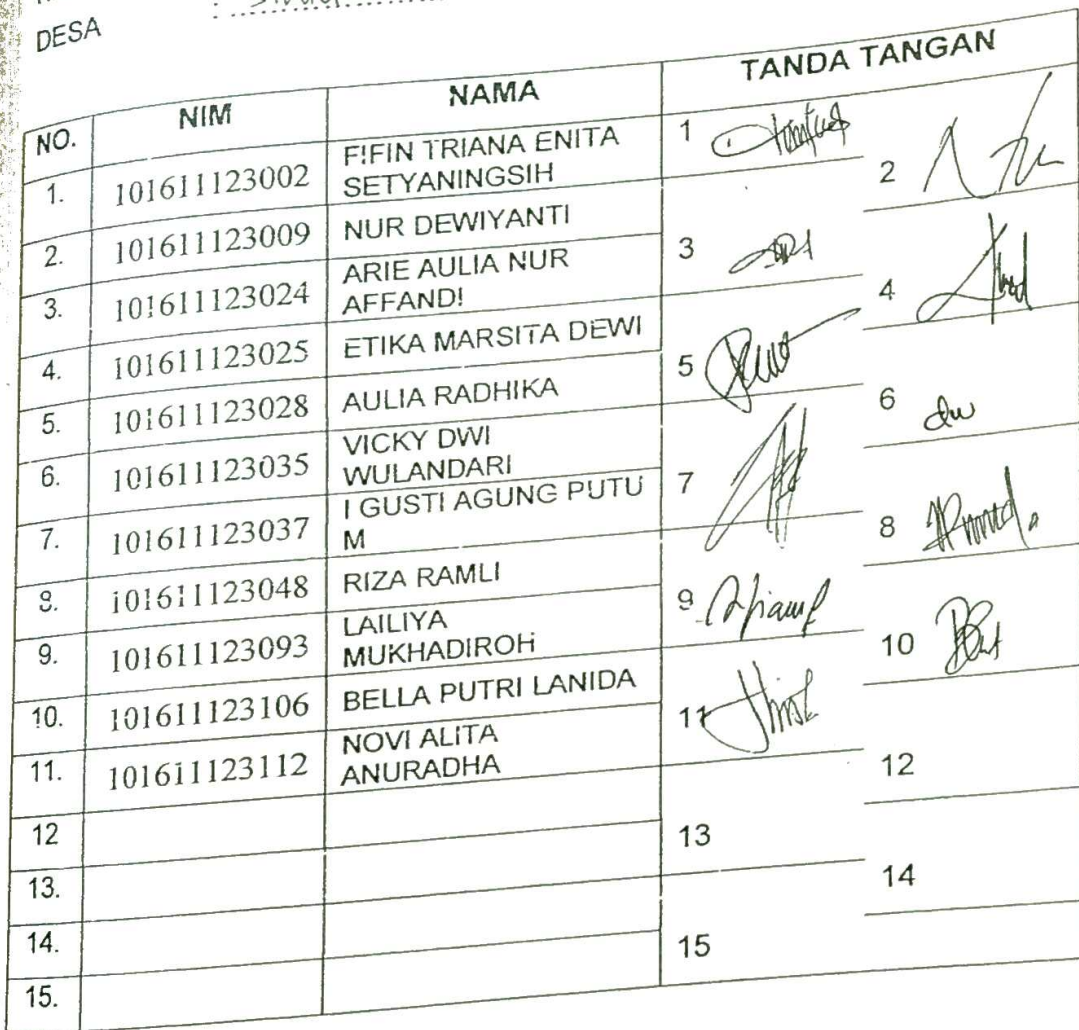 DESA :
NO. NIM NAMA TANDA TANGAN
1. 101611123002 FIFIN TRIANA ENITA SETYANINGSIH 1
2. 101611123009 NUR DEWIYANTI 2
3. 101611123024 ARIE AULIA NUR AFFANDI 3
4. 101611123025 ETIKA MARSITA DEWI 4
5. 101611123028 AULIA RADHIKA 5
6. 101611123035 VICKY DWI WULANDARI 6
7. 101611123037 I GUSTI AGUNG PUTU M 7
8. 101611123048 RIZA RAMLI 8
9. 101611123093 LAILIYA MUKHADIROH 9
10. 101611123106 BELLA PUTRI LANIDA 10
11. 101611123112 NOVI ALITA ANURADHA 11
12 12
13. 13
14. 14
15. 15